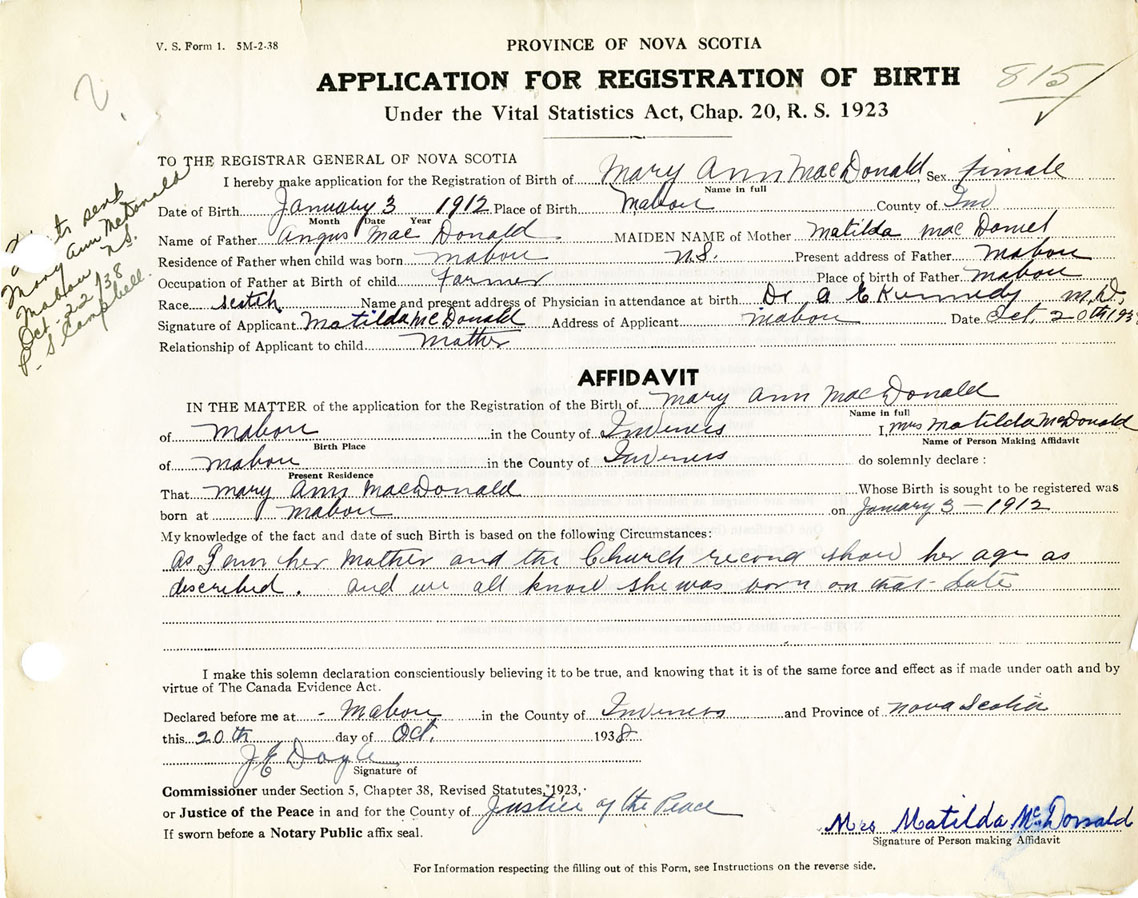 V. S. Form 1. 5M-2-38
PROVINCE OF NOVA SCOTIA
APPLICATION FOR REGISTRATION OF BIRTH
815
Under the Vital Statistics Act, Chap. 20, R. S. 1923
TO THE REGISTRAR GENERAL OF NOVA SCOTIA
I hereby make application for the Registration of Birth of Mary Ann MacDonald Sex female
Name in full
Date of Birth January 3 1912 Place of Birth Mabou County of Inv
Month Date Year
Name of Father Angus MacDonald MAIDEN NAME of Mother Matilda MacDaniel
Residence of Father when child was born Mabou N.S. Present address of Father Mabou
Occupation of Father at Birth of child Farmer Place of birth of Father Mabou
Race Scotch Name and present address of Physician in attendance at birth Dr. A E Kennedy M.D.
Signature of Applicant Matilda McDonald Address of Applicant Mabou Date Oct. 20th 193
Relationship of Applicant to child Mother
sent
Mary Ann McDonald
Mabou N.S.
Oct. 22/38
S Campbell.
AFFIDAVIT
IN THE MATTER of the application for the Registration of the Birth of Mary Ann MacDonald
Name in full
of Mabou in the County of Inverness I, Mrs Matilda McDonald
Birth Place Name of Person Making Affidavit
of Mabou in the County of Inverness do solemnly declare :
Present Residence
That Mary Ann MacDonald Whose Birth is sought to be registered was
born at Mabou on January 3 - 1912
My knowledge of the fact and date of such Birth is based on the following Circumstances:
As I am her Mother and the Church record show her age as
discribed. and we all know she was born on that date
I make this solemn declaration conscientiously believing it to be true, and knowing that it is of the same force and effect as if made under oath and by
virtue of The Canada Evidence Act.
Declared before me at - Mabou in the County of Inverness and Province of Nova Scotia
this 20th day of Oct. 1938
J E Doyle
Signature of
Commissioner under Section 5, Chapter 38, Revised Statutes, 1923,
or Justice of the Peace in and for the County of Justice of the Peace
If sworn before a Notary Public affix seal.
Mrs Matilda McDonald
Signature of Person making Affidavit
For Information respecting the filling out of this Form, see Instructions on the reverse side.